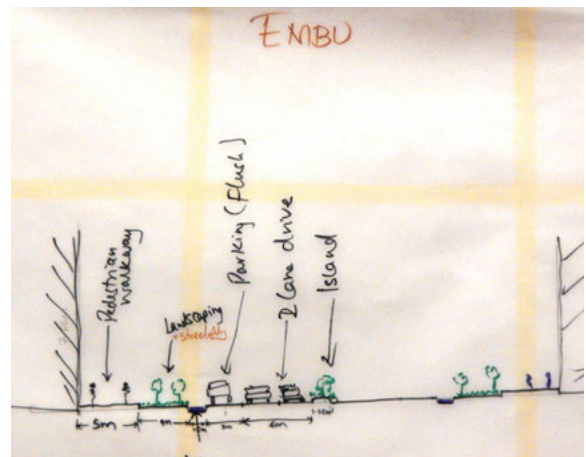 EMBU
Pedestrian
walkway
Landscaping
+ Streetlights
Parking (flush)
2 Lane drive
Island
5m
4m
6m